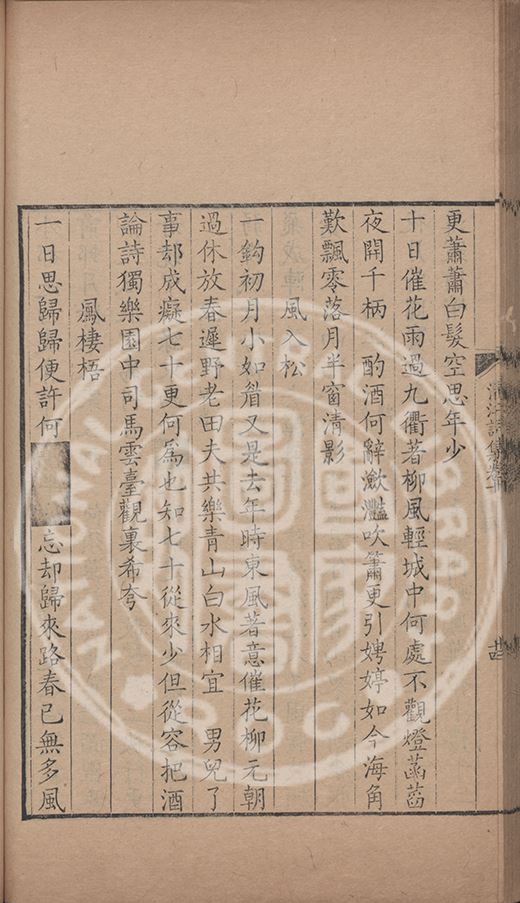 更蕭蕭白髮空思年少
十日催花雨過九衢著柳風輕城中何處不觀燈菡萏
夜開千柄　酌酒何辭瀲灩吹簫更引娉婷如今海角
歎飄零落月半窗清影
風入松
一鈎初月小如眉又是去年時東風著意催花柳元朝
過休放春遲野老田夫共樂青山白水相宜　男兒了
事却成癡七十更何爲也知七十從來少但從容把酒
論詩獨樂園中司馬雲臺觀裏希夸
鳳棲梧
一日思歸歸便許何忘却歸來路春已無多風
NATIONAL CENTRAL LIBRARY